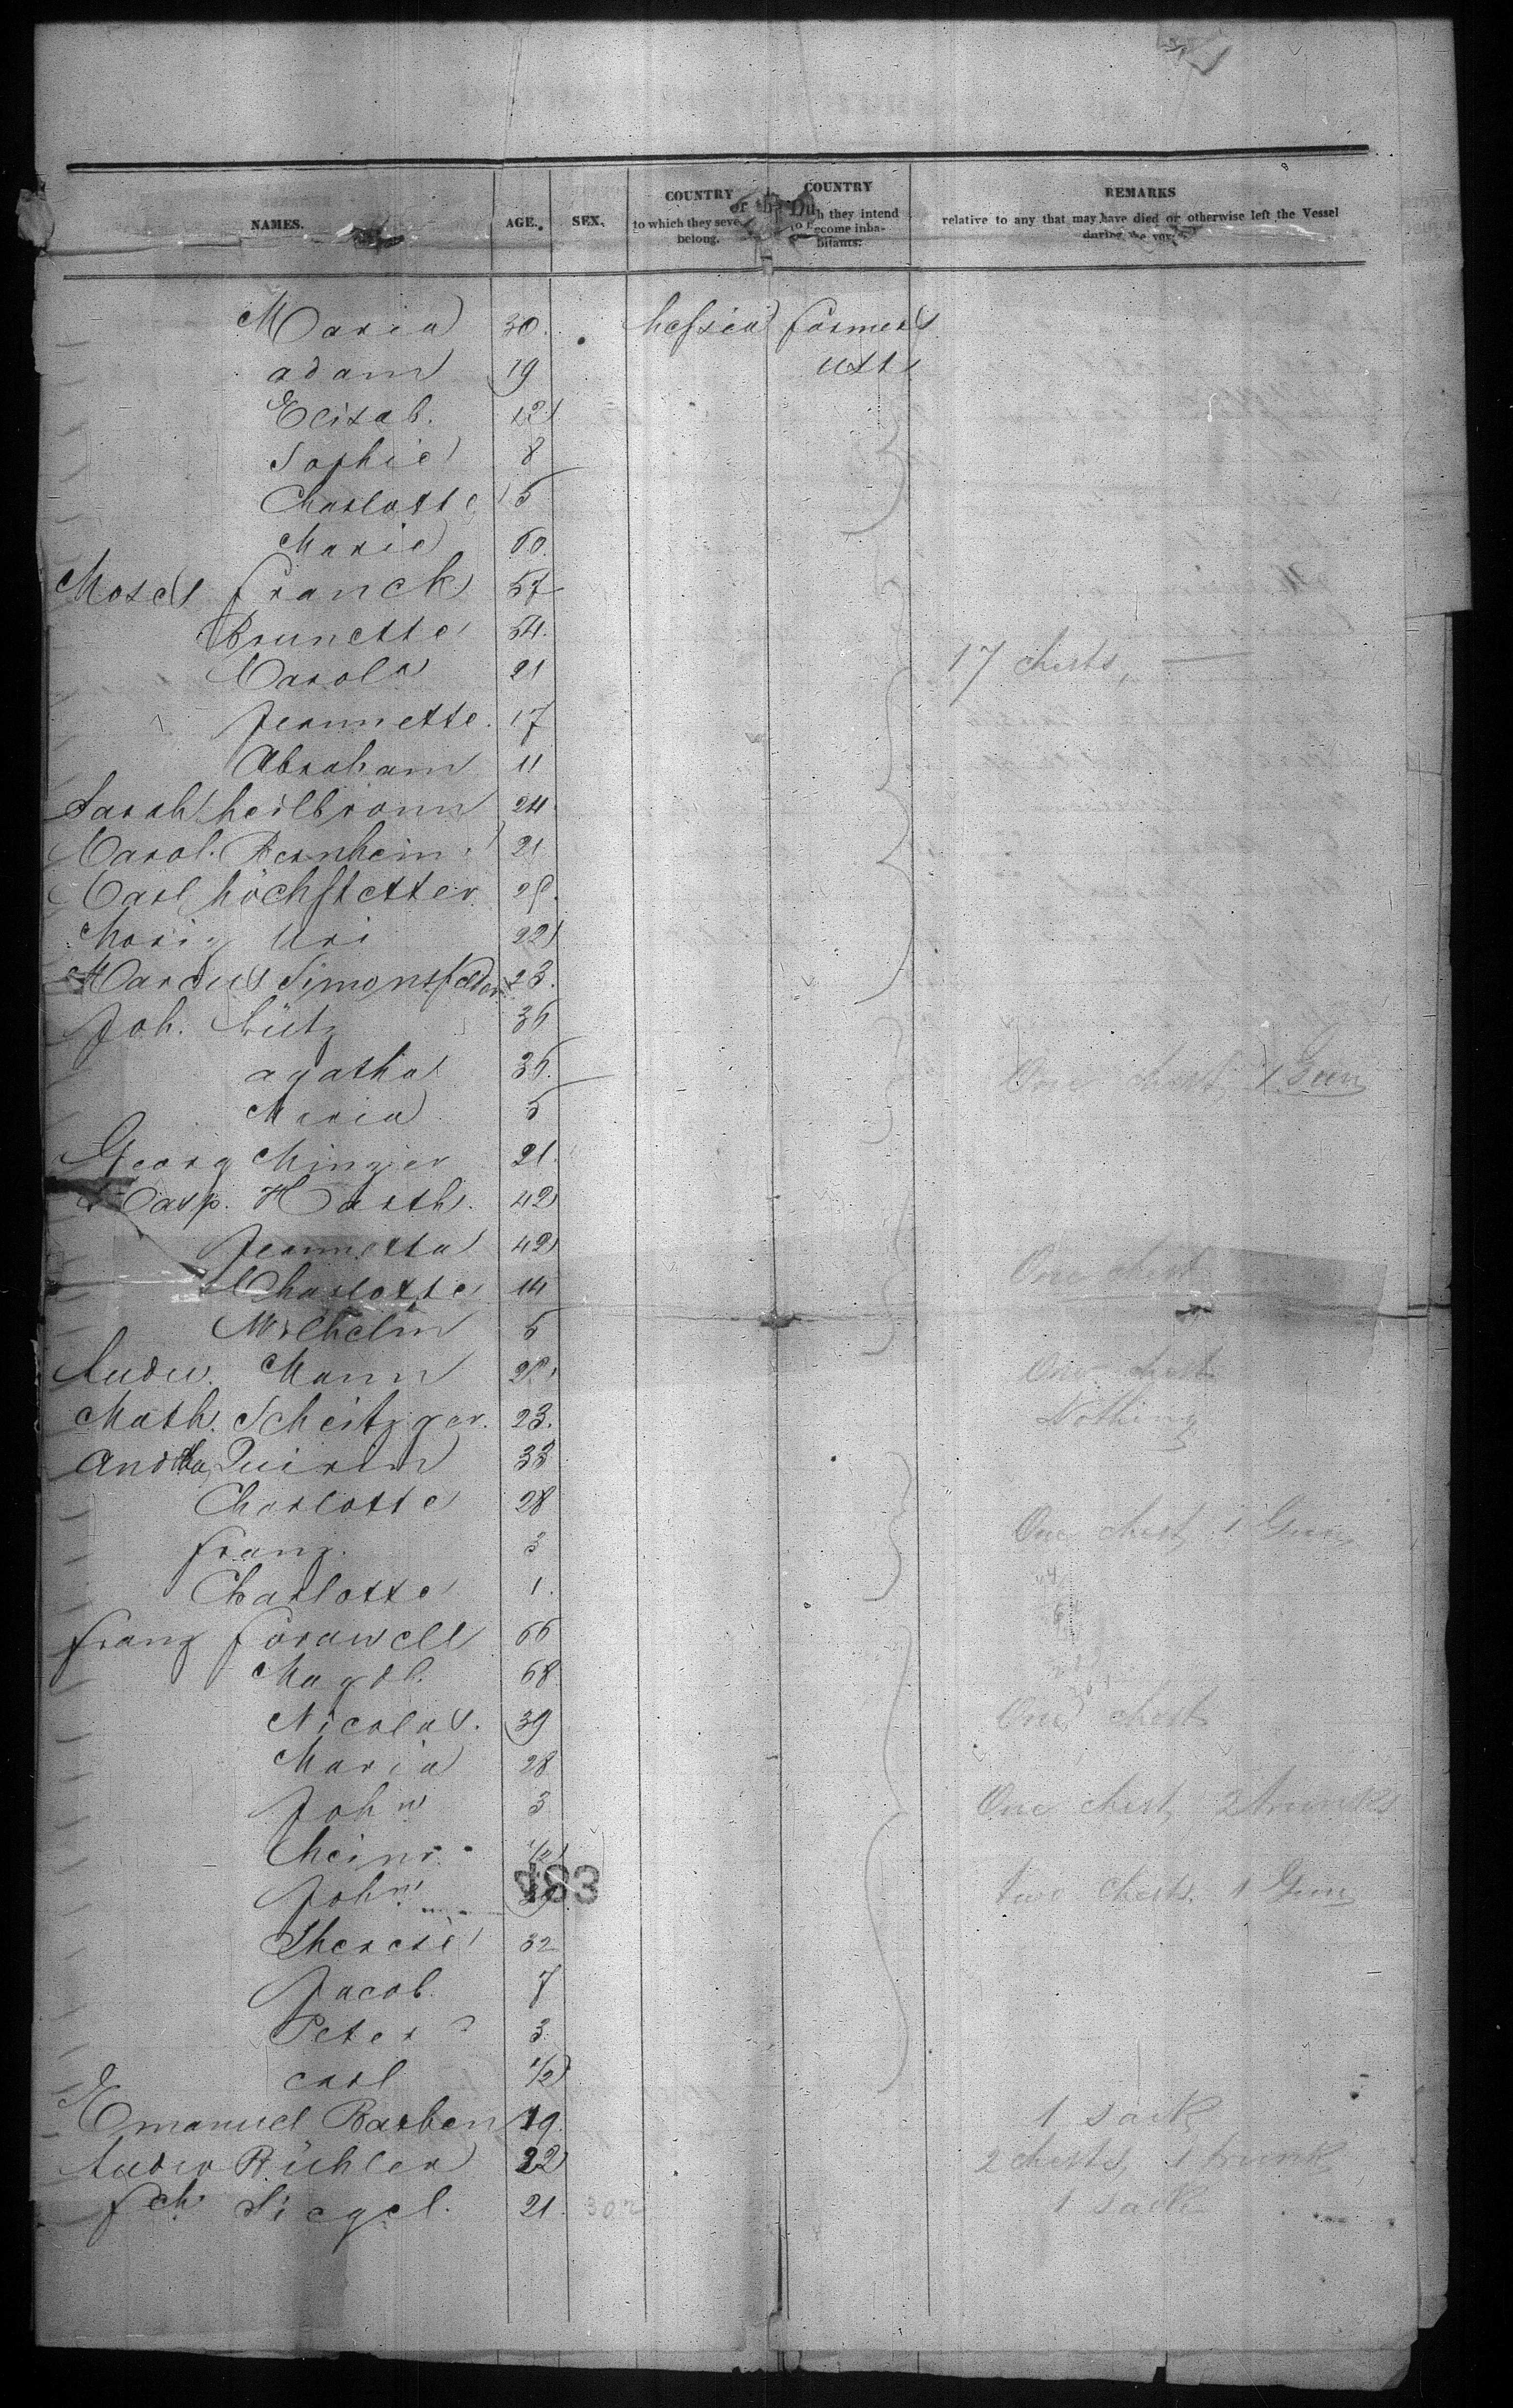 NAMES. AGE. SEX. COUNTRY to which they seve belong. COUNTRY h they intend to become inhabitants. REMARKS relative to any that may have died or otherwise left the Vessel during the voy
Maria 30. hessia farmers
adam 19 usts
Elisab. 12
Sophie 8
Charlotte 5
Marie 60.
Moses franck 57
Brunette 54.
Carola 21 17 chests,
Jeannette. 17
Abraham 11
Sarah heilbronn 24
Carol. Bernheim 21
Carl höchstetter 29.
Moriz Uri 22
Marcus Simonsfelder 23.
Joh. Lütz 36
agatha 35. One chest, 1 Gun
Maria 5
Georg Minger 21.
Casp. Harth. 42
Jeannetta 42
Charlotte 14 One chest
Wilhelm 5
Ludw. Mann 29 One chest
Math. Scheitzger. 23. Nothing
Quirin 33
Charlotte 28 One chest, 1 Gun
franz. 3
Charlotte 1.
franz forawell 66
Magdl. 68
Nicolas. 39 One chest
Maria 28
John 3 One chest, 2 trunks
heinr. 1/2
483
John two chests. 1 Gun
Therese 32
Jacob. 7
Peter 3.
carl 1/2
Emanuel Barben 19. 1 sack
Ludw Bühler 22 2 chests, 1 trunk
fch Siegel. 21. 302 1 sack